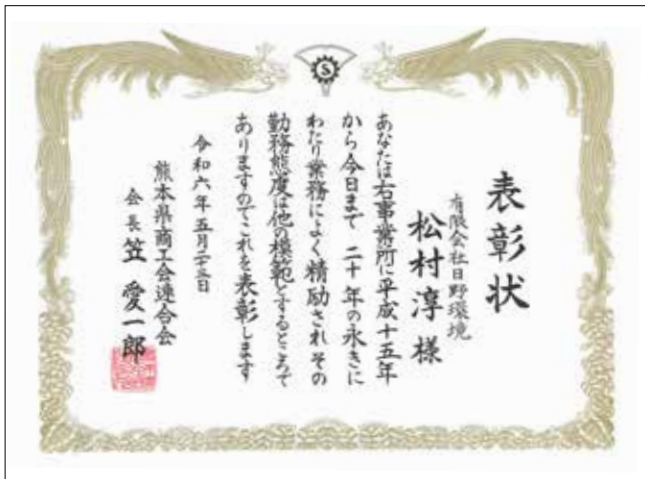 表彰状
有限会社日野環境
松村淳様
あなたは右事業所に平成十五年
から今日まで二十年の永きに
わたり業務によく精励されその
勤務態度は他の模範とするところで
ありますのでこれを表彰します
令和六年五月二十三日
熊本県商工会連合会
会長 笠愛一郎
S